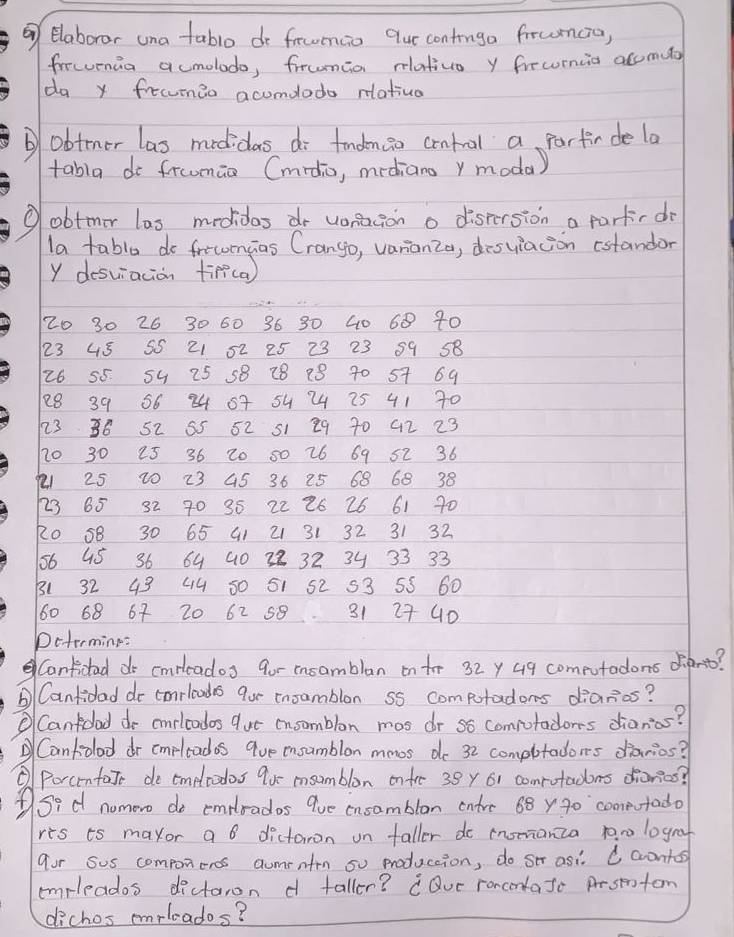 a) Elaborar una tabla de frecuencia que contenga frecuencia,
frecuencia acumulada, frecuencia relativa y frecuencia acumula
da y frecuencia acumulada relativa
b) obtener las medidas de tendencia central a partir de la
tabla de frecuencia (media, mediana y moda)
c) obtener las medidas de variación o dispersión a partir de
la tabla de frecuencias (rango, varianza, desviación estandar
y desviación tipica)
20 30 26 30 60 36 30 40 68 70
23 45 55 21 52 25 23 23 59 58
26 55 54 25 58 28 28 70 57 69
28 39 56 24 67 54 24 25 41 70
23 36 52 55 52 51 29 70 42 23
20 30 25 36 20 50 26 69 52 36
21 25 20 23 45 36 25 68 68 38
23 65 32 70 35 22 26 26 61 70
20 58 30 65 41 21 31 32 31 32
56 45 36 64 40 22 32 34 33 33
31 32 49 44 50 51 52 53 55 60
60 68 67 20 62 58 31 27 40
Determine:
a) Cantidad de empleados que ensamblan entre 32 y 49 computadores diario?
b) Cantidad de empleados que ensamblan 55 computadores diarios?
c) Cantidad de empleados que ensamblan mas de 56 computadores diarios?
D) Cantidad de empleados que ensamblan menos de 32 computadores diarios?
e) Porcentaje de empleados que ensamblan entre 38 y 61 computadores diarios?
f) Si el numero de empleados que ensamblan entre 68 y 70 computado
res es mayor a 8 dictaran un taller de enseñanza para lograr
que sus compañeros aumenten su produccion, de ser asi. ¿ cuantos
empleados dictaran el taller? ¿Que porcentaje presentan
dichos empleados?